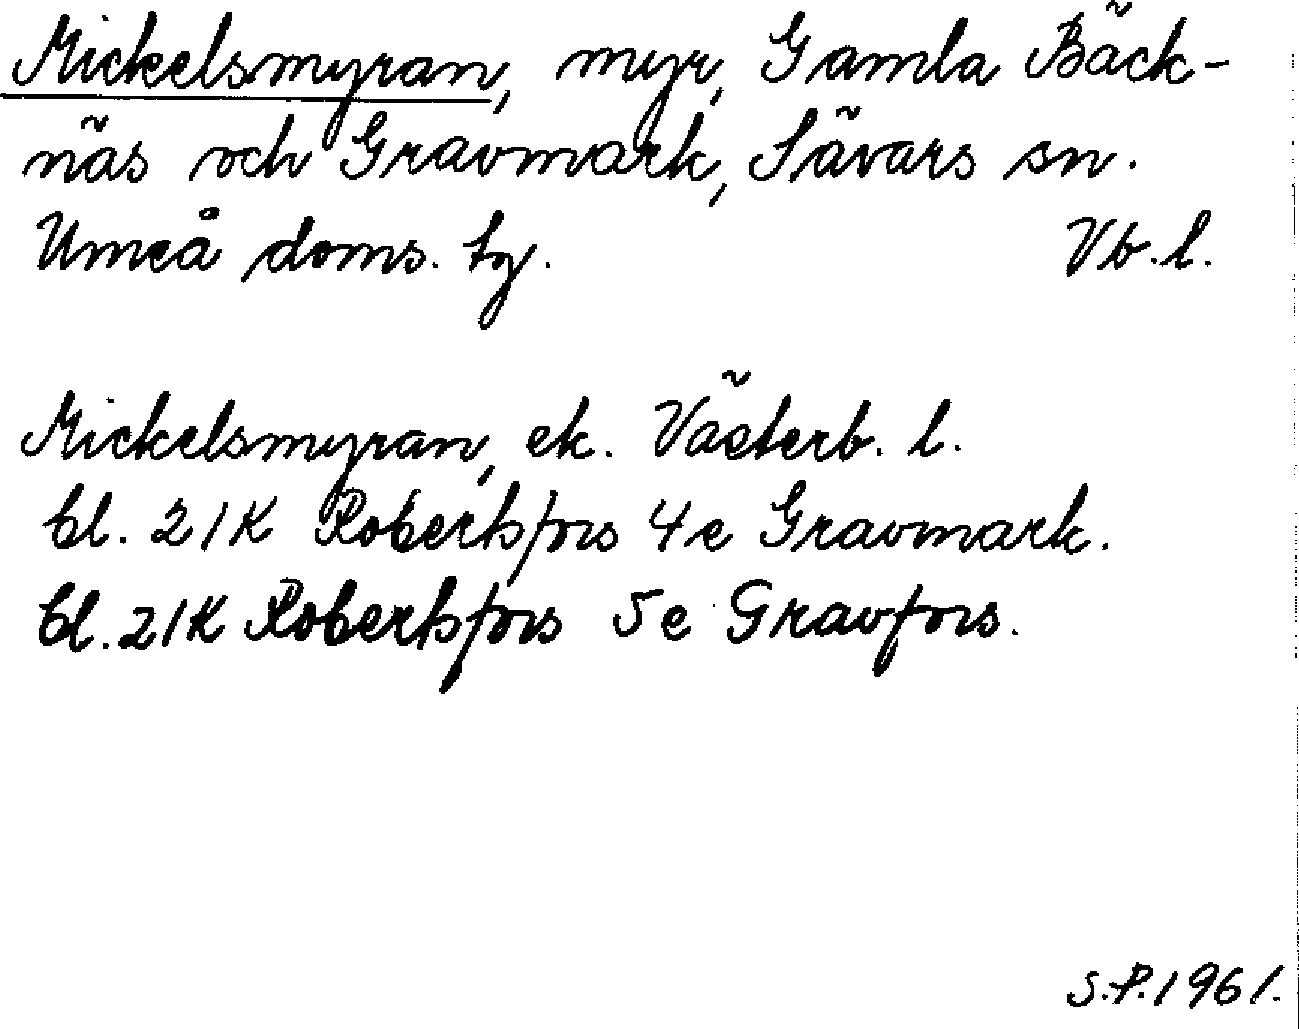 Mickelsmyran, myr, Gamla Bäck-
näs och Gravmark, Sävars sn.
Umeå doms. tg. Vb. l.
Mickelsmyran, ek. Västerb. l.
bl. 21K Robertsfors 4e Gravmark.
bl. 21K Robertsfors 5e Gravfors.
S.P. 1961.